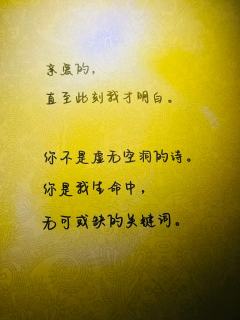 亲爱的,
直至此刻我才明白。
你不是虚无空洞的诗。
你是我生命中,
无可或缺的关键词。